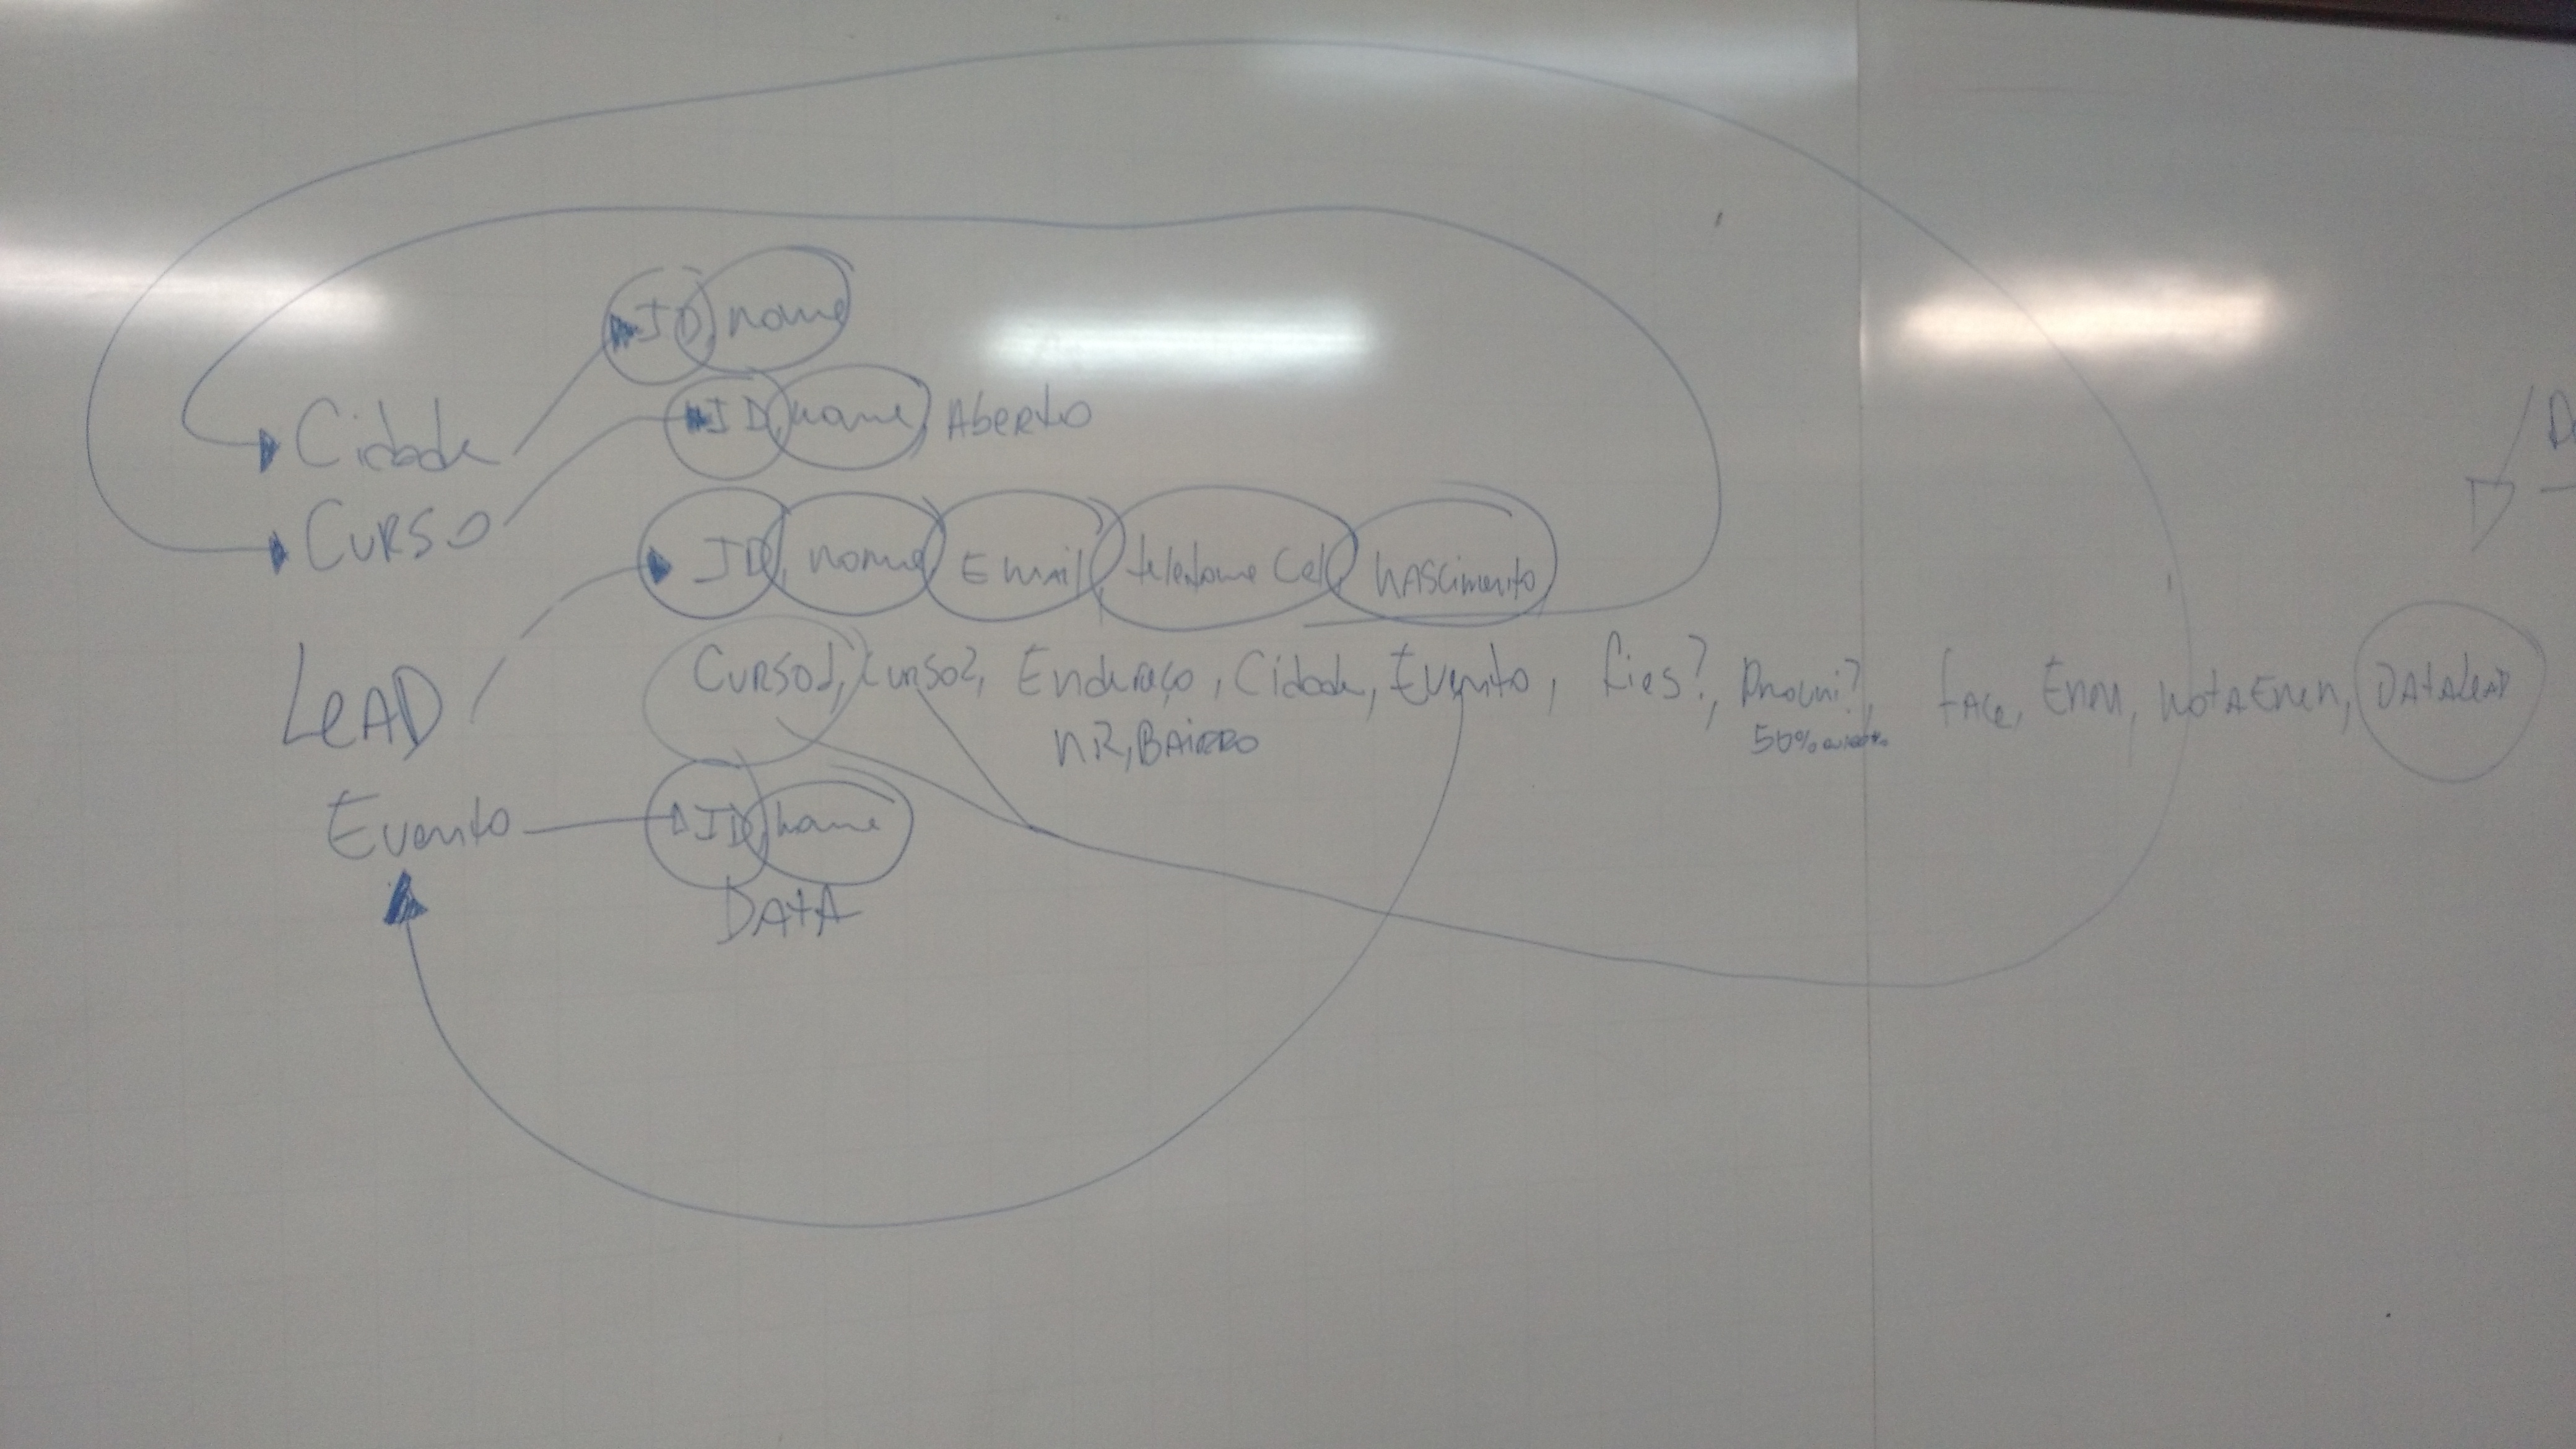 ID, nome
Cidade
ID, nome, Aberto
Curso
ID, nome, Email, telefone Cel, nascimento
Lead
Curso1, Curso2, Endereço, Cidade, Evento, fies?, Prouni?, face, Enem, notaEnem, DataLead
nr, Bairro
50%
Evento
ID, nome
Data